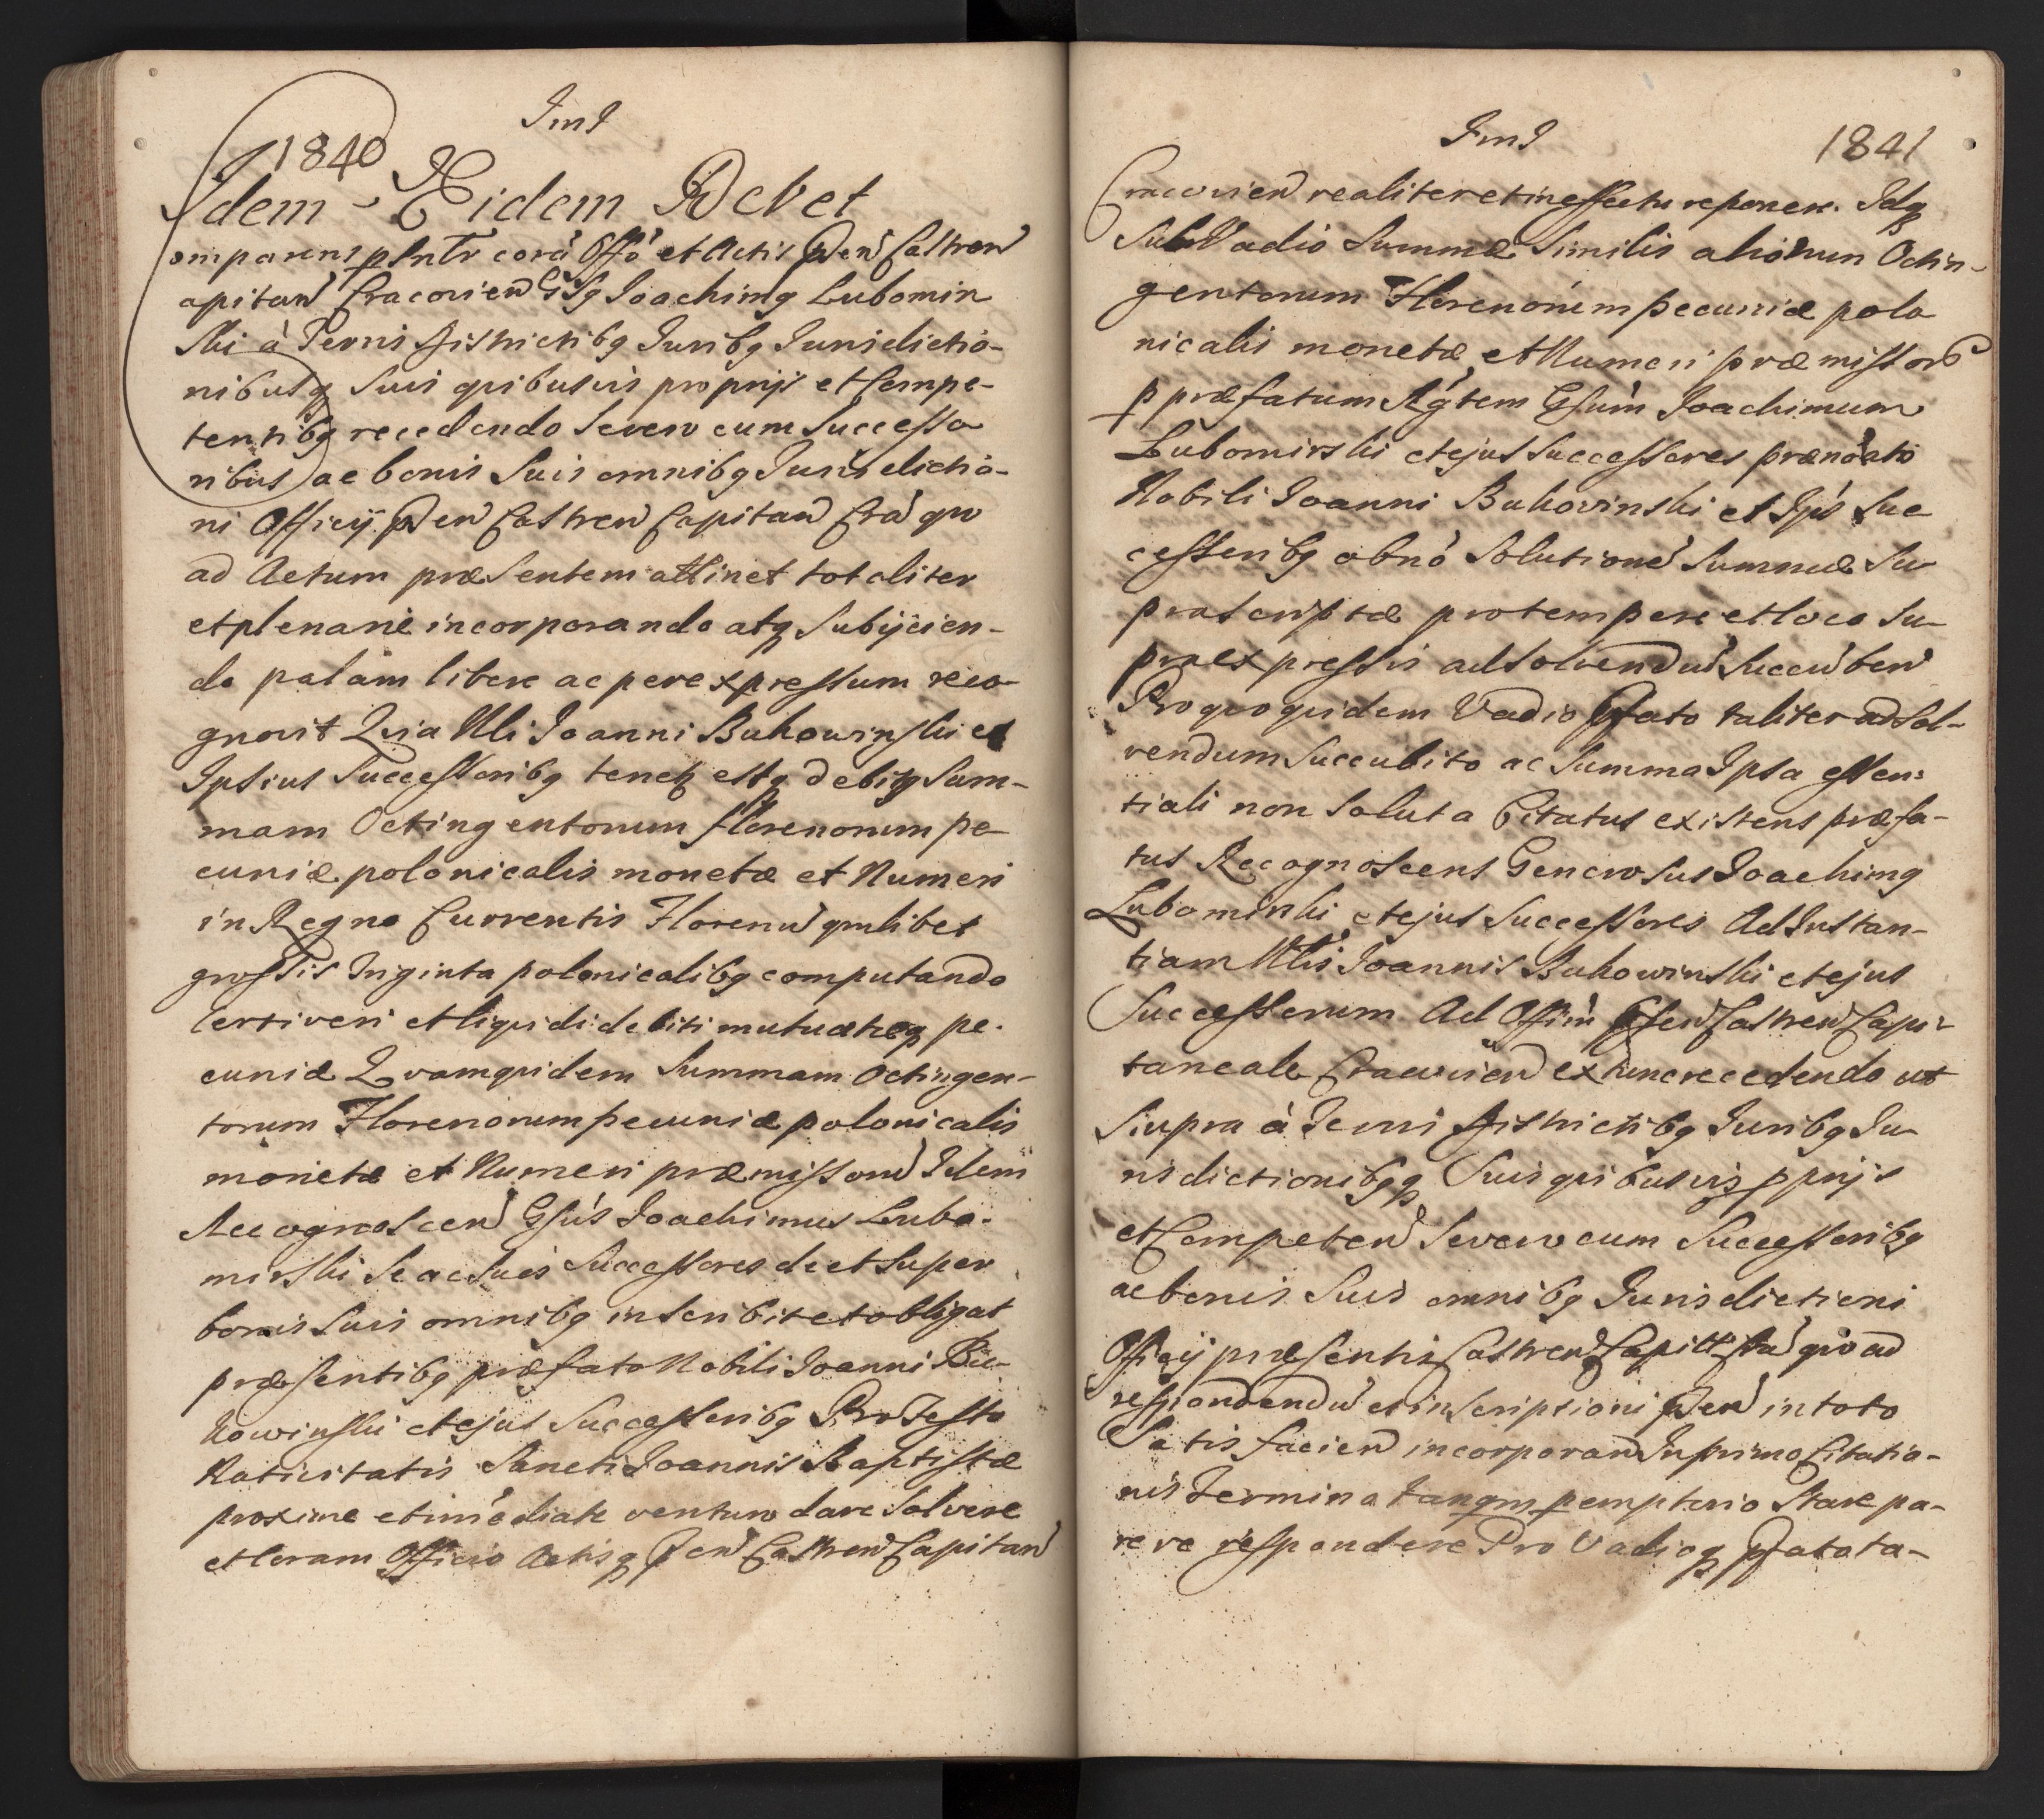 1840
Idem Eidem Debet
Comparens plntr corā Offo et Actis Pnen Castren
Capitan Cracovien Gsq Joachimq Lubomir
ski à Terris Districtibq Juribq Jurisdictio-
nibusq suis quibusvis proprijs et Compe-
tentibq recedendo Severo cum Successo
ribus ac bonis Suis omnibq Jurisdictio-
ni Officij Pnen Castren Capitan Cra quo
ad Actum præsentem attinet totaliter
et plenarie incorporando atq Subijcien-
do palam libere ac per expressum reco-
gnovit Quia Nli Joanni Bukowinski et
Ipsius Successoribq tenetq estq debitq Sum-
mam Octingentorum florenorum pe-
cuniæ polonicalis monetæ et Numeri
in Regno Currentis Florenū qmlibet
grossis Triginta polonicalibq computando
Certi veri et liquidi debiti mutuatæq pe-
cuniæ Quamquidem Summam Octingen-
torum Florenorum pecuniæ polonicalis
monetæ et Numeri præmissorū Idem
Recognoscen Gsús Joachimus Lubo-
mirski Se ac Suos Successores de et Super
bonis Suis omnibq inscribit et obligat
præsentibq præfato Nobili Joanni Bu-
kowinski et ejus Successoribq Pro Festo
Nativitatis Sancti Joannis Baptistæ
proxime et imediate venturo dare Solvere
et Coram Officio Actisq Pnen Castren Capitan
1841
Cracovien realiter et in effectu reponere. Idq
Sub Vadio Summæ Similis aliorum Octin-
gentorum Florenorum pecuniæ polo
nicalis monetæ et Numeri præmissorū
p præfatum Rgtem Gsum Joachimum
Lubomirski et ejus Successores prænoato
Nobili Joanni Bukowinski et Ipś Suc
cessoribq ob nō Solutionē Summæ Su-
prascriptæ pro tempore et loco Su-
praexpressis ad Solvendū Succūben
Pro quo quidem Vadio Pfato taliter ad Sol-
vendum Succubito ac Summa Ipsa essen-
tiali non Soluta Citatus existens præfa-
tus Recognoscens Generosus Joachimq
Lubomirski et ejus Successores Ad Instan-
tiam Nlis Joannis Bukowinski et ejus
Successorum Ad Offim Pnsen Castren Capi-
taneale Cracovien ex tunc recedendo ut
Supra à Terris Districtibq Juribq Ju-
risdictionibqq Suis quibusvis pprijs
et Competen Severo cum Successoribq
ac bonis Suis omnibq Jurisdictioni
Officij præsentis Castren Capitt Cra quo ad
respondendū et inscriptioni Pnen in toto
Satisfacien incorporan In primo Citatio-
nis Termino tanqm pemptorio Stare pa-
rere respondere Pro Vadioq Pfato ta-